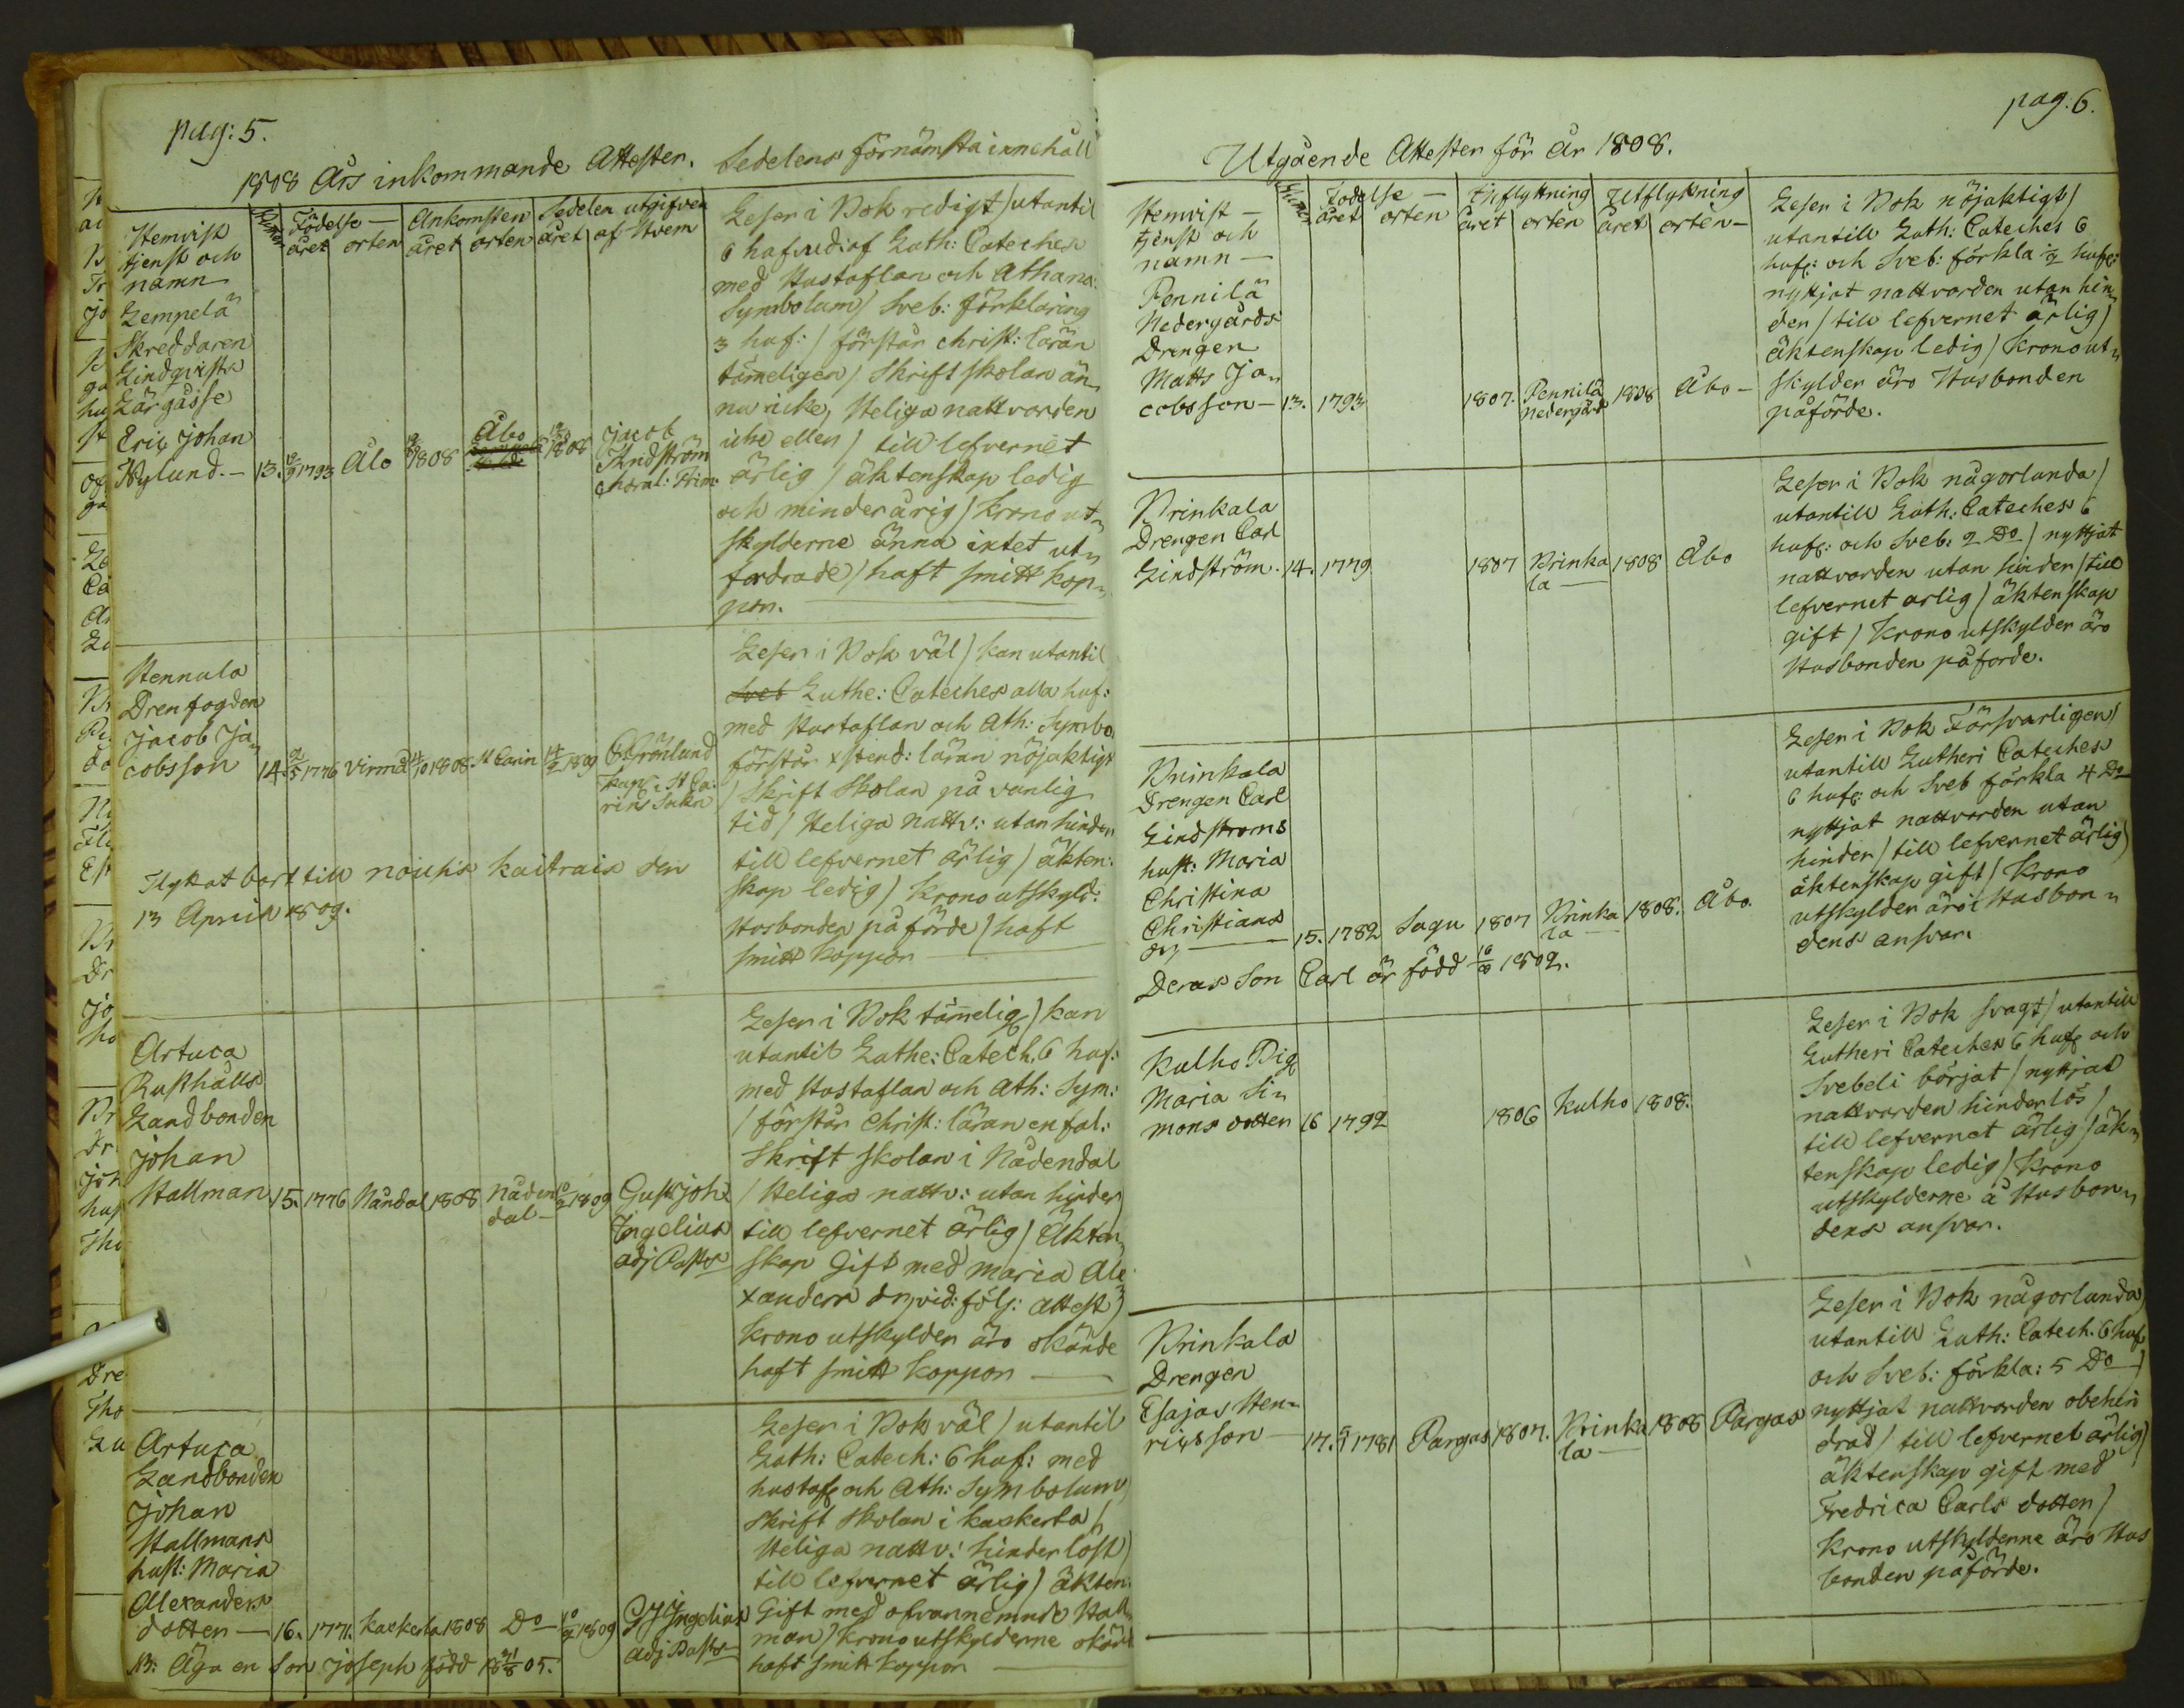 pag: 5.
1808 Års inkommande Attester. Sedelens förnämsta innehåll
Hemvist
tjenst och
namn
Numer
Födelse —
året orten
Ankomsten
året orten
Sedelen utgifven
året af Hvem
Lempelä
Skreddaren
Lindqvists
Lärgåsse
Eric Johan
Nylund. — 13. 1793 Åbo 1808 Åbo 1808 Jacob
Lindström
Leser i Bok redigt / utantil
6 hafvud: af Luth: Cateches
med Hustaflan och Athana:
Symbolum / Sveb: förklaring
3 huf: / förstår christ: läran
tämeligen / Skriftskolan än„
nu icke, Heliga nattvarden
icke eller / till lefvernet
ärlig / äktenskap ledig
och minderårig / krono ut„
skylderne änna intet ut„
fordrade / haft smitt kop„
por.
Hennala
Drenfogden
Jacob Ja„
cobsson 14. 2/5 1776 Virmå 14/10 1808 St Carin 14/2 1809 Grönlund
Kap: i St Ca„
rins Sokn
Flyttat bort till nousis kaitrais den
13 April 1809.
Leser i Bok väl / kan utantil
Sveb Luthe: Cateches alla huf:
med Hustaflan och Ath: Symbo
förstår xstend: läran nöjaktigt
/ Skrift Skolan på vanlig
tid / Heliga nattv: utan hinder
till lefvernet ärlig / äkten:
skap ledig / krono utskyld:
Husbonden påförde / haft
smitt koppor —
Artuca
Rusthålls
Landbonden
Johan
Hallman 15. 1776 Nåndal 1808 Nåden
dal — 10/2 1809 Gust Joh
Ingelius
adj Past:
Leser i Bok tämelig / kan
utantil Luthe: Catech. 6 huf:
med Hustaflan och Ath: Sym:
/ förstår Christ: läran enfal:
Skrift skolan i Nådendal
/ Heliga nattv: utan hinder
till lefvernet ärlig / Äkten„
skap Gift med Maria Ale„
xanders dr, vid: följ: attest /
krono utskylder äro okände
haft smitt koppor —
Artuca
Landbonden
Johan
Hallmans
hust: Maria
Alexanders
dotter — 16. 1771. kaskerta 1808 Do — 10/2 1809 G J Ingelius
adj Past:
NB: Äga en son Joseph född 18 31/8 05.
Leser i Bok väl / utantil
Luth: Catech: 6 huf: med
hustafl och Ath: Symbolum
Skrift skolan i kaskerta /
Heliga nattv: hinderlöst /
till lefvernet ärlig / äkten:
Gift med ofvannemnde Hall„
man / krono utskylderne okänd
haft smitt koppor —
pag. 6.
Utgående Attester för år 1808.
Hemvist —
tjenst och
namn —
Numer
Födelse —
året orten
Inflyttning
året orten
Utflyttning
året orten —
Pennilä
Nedergårds
Drengen
Matts Ja„
cobsson — 13. 1793 1807. Pennilä
Nedergård 1808 Åbo —
Leser i Bok nöjaktigt /
utantill Luth: Cateches 6
huf: och Sveb: förkla: 2 huf:
nyttjat nattvarden utan hin„
der / till lefvernet ärlig /
äktenskap ledig / Krono ut„
skylder äro Husbonden
påförde.
Prinkala
Drengen Carl
Lindström. 14. 1779 1807 Prinka
la — 1808 Åbo
Leser i Bok någorlunda /
utantill Luth: Cateches 6
huf: och Sveb: 2 Do / nyttjat
nattvarden utan hinder / till
lefvernet arlig / äktenskap
gift / Krono utskylder äro
Husbonden påforde.
Prinkala
Drengen Carl
Lindstroms
hust: Maria
Christina
Christians
dr — 15. 1782 Sagu 1807 Prinka
la — 1808. Åbo.
Deras Son Carl är född 10/8 1802.
Leser i Bok Försvarligen /
utantill Lutheri Cateches
6 huf: och Sveb förkla 4 Do
nyttjat nattvarden utan
hinder / till lefvernet ärlig /
äktenskap gift / Krono
utskylder äro i Husbon„
dens ansvar.
Kulho Pig
Maria Si„
mons dotter 16 1792 1806 Kulho 1808.
Leser i Bok svagt / utantill
Lutheri Cateches 6 huf: och
Svebeli börjat / nyttjat
nattvarden hinderlös /
till lefvernet ärlig / äk„
tenskap ledig / Krono
utskylderne å Husbon„
dens ansvar.
Prinkala
Drengen
Esajas Hen„
ricsson — 17. 1781 Pargas 1807. Prinka
la — 1808 Pargas
Leser i Bok någorlunda /
utantill Luth: Catech. 6 huf
och Sveb: förkla: 5 Do —
nyttjat nattvarden obehin
drad / till lefvernet ärlig /
äktenskap gift med
Fredrica Carls dotter /
Krono utskylderne äro Hus
bonden påförde.